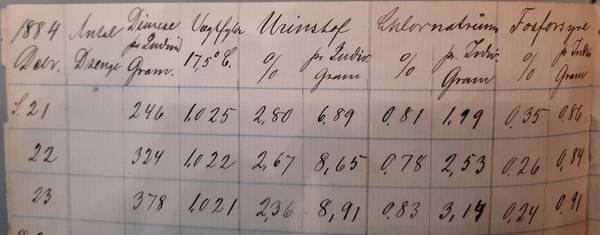 1884 Antal Diurese Vægtfylde Urinstof Chlornatrium Fosforsyre
Decbr. Drenge pr Individ 17,5° C. % pr Indiv. % pr. Indiv. % pr. Indiv.
Gram. Gram Gram Gram
S. 21 246 1,025 2,80 6,89 0,81 1,99 0,35 0,86
22 324 1,022 2,67 8,65 0,78 2,53 0,26 0,84
23 378 1,021 2,36 8,91 0,83 3,14 0,24 0,91